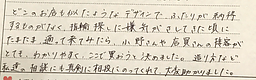 どこのお店も似たようなデザインで、ふたりが納得
するものがなく、指輪探しに様気がさしてきた頃に
たまたま通って来てみたら、小野さんや店員さんの接客が
とても、わかりやすく、ここで買おうと決めました。通り大ない
私達の相談にも真剣に相談にのってくれて、大変助かりました。